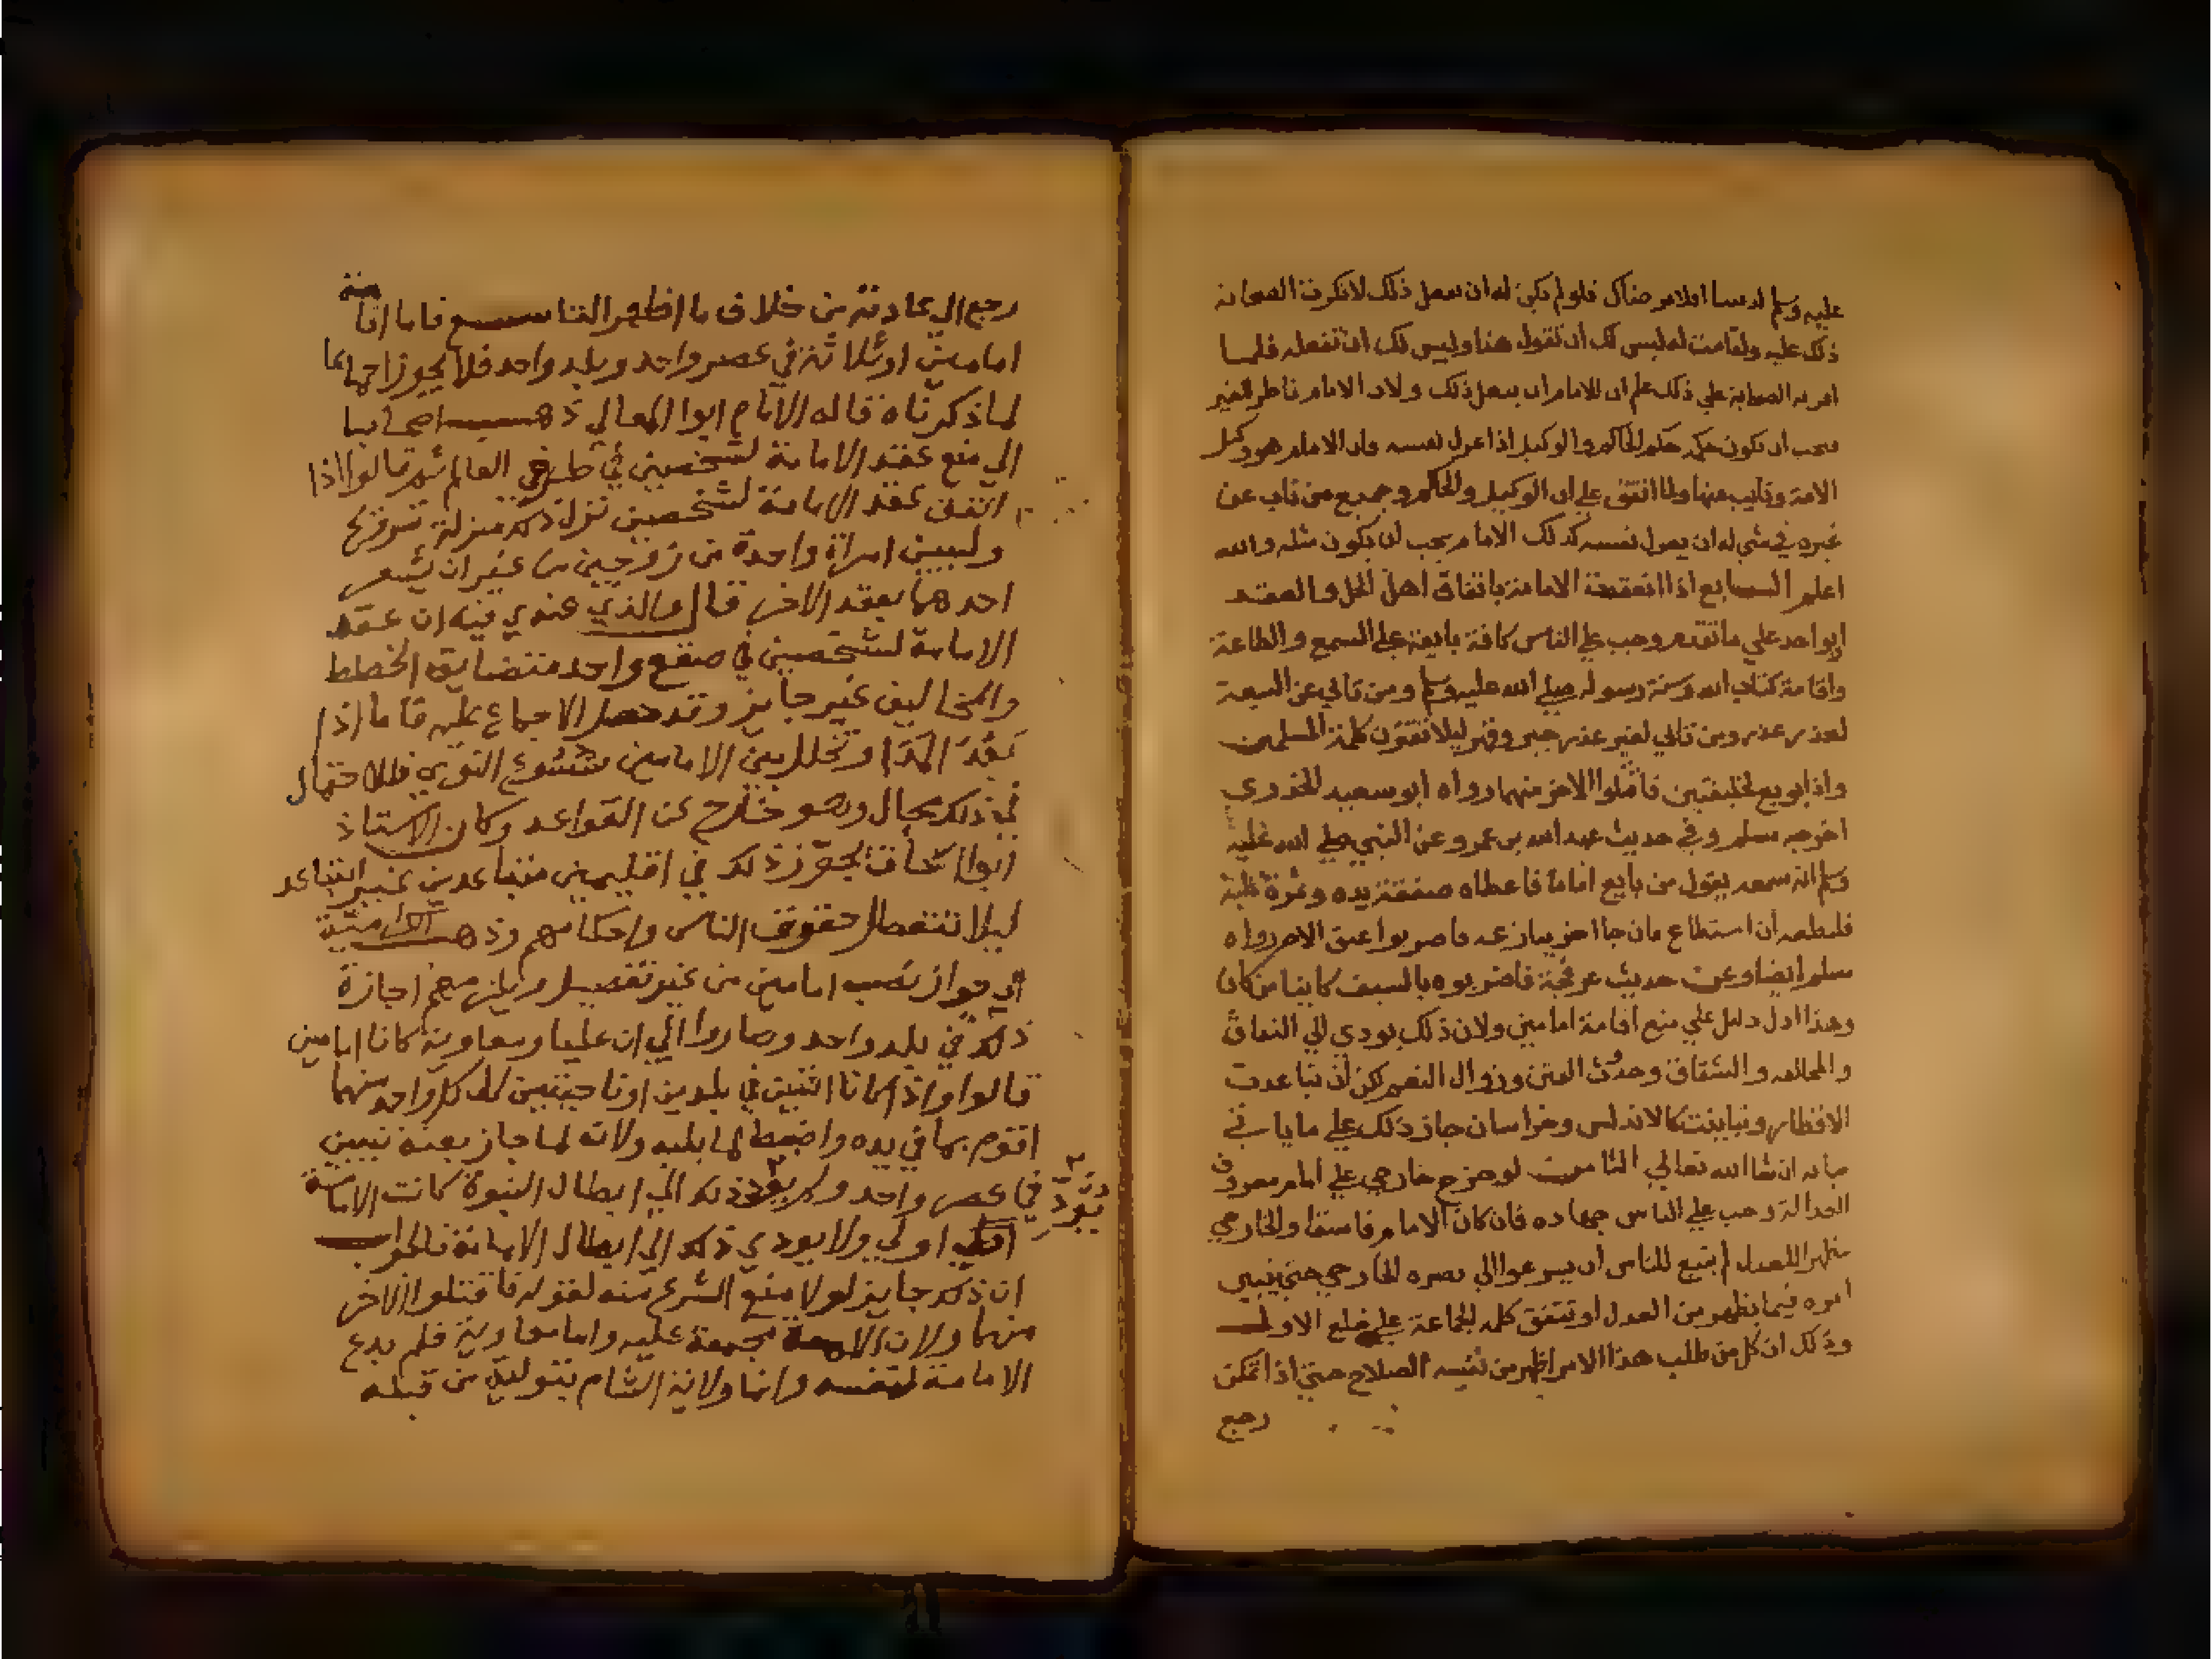 عليه وسلم لديننا افلا نرضاك فلو لم يكن له ان يفعل ذلك لانكرت الصحابة
ذلك عليه ولقامت له ليس لك ان تقول هذا وليس لك ان تفعله فلما
اقرته الصحابة علي ذلك علم ان للامام ان يفعل ذلك ولان الامام ناظر للغير
فيجب ان يكون حكمه حكم الحاكم والوكيل اذا عزل نفسه فان الامام هو وكيل
الامة ونايب عنها ولما اتفق علي ان الوكيل والحاكم وجميع من ناب عن
غيره في شي له ان يعزل نفسه كذلك الامام يجب ان يكون مثله والله
اعلم السابع اذا انعقدت الامامة باتفاق اهل الحل والعقد
او واحد علي ما تقدم وجب علي الناس كافة بايعته علي السمع والطاعة
واقامة كتاب الله وسنة رسوله صلي الله عليه وسلم ومن تابي عن البيعة
لعذر عذر ومن تابي لغير عذر جبر وقهر ليلا تفترق كلمة المسلمين
واذا بويع لخليفتين فاقتلوا الاخر منهما رواه ابو سعيد الخدري
اخرجه مسلم وفي حديث عبد الله بن عمرو عن النبي صلي الله عليه
وسلم انه سمعه يقول من بايع اماما فاعطاه صفقة يده وثمرة قلبه
فليطعه ان استطاع فان جا اخر ينازعه فاضربوا عنق الاخر رواه
مسلم ايضا وعن حديث عرفجة فاضربوه بالسيف كاينا من كان
وهذا ادل دليل علي منع اقامة امامين ولان ذلك يودي الي النفاق
والمخالفة والشقاق وحدوث الفتن وزوال النعم لكن ان تباعدت
الاقطار وتباينت كالاندلس وخراسان جاز ذلك علي ما ياتي
بيانه ان شا الله تعالي الثامن لو خرج خارجي علي امام معروف
العدالة وجب علي الناس جهاده فان كان الامام فاسقا والخارجي
مظهرا للعدل لم ينبغ للناس ان يسرعوا الي نصره الخارجي حتي يتبين
امره فيما يظهر من العدل او تتفق كلمة الجماعة علي خلع الاول
وذلك ان كل من طلب هذا الامر اظهر من نفسه الصلاح حتي اذا تمكن
رجع
رجع الي عادته من خلاف ما اظهر التاسع فاما اقامة
امامين او ثلاثة في عصر واحد وبلد واحد فلا يجوز اجماعا
لما ذكرناه قاله الامام ابوا المعالي ذهب اصحابنا
الي منع عقد الامامة لشخصين في طرفي العالم ثم قالوا اذا
اتفق عقد الامامة لشخصين نزل ذلك منزلة تزويج
وليين امراة واحدة من زوجين من غير ان يشعر
احدهما بعقد الاخر قال والذي عندي فيه ان عقد
الامامة لشخصين في صقع واحد متضايق الخطط
والمخاليف غير جايز وقد حصل الاجماع عليه فاما اذا
بعد المدا وتخلل بين الامامين شسوع النوي فللاحتمال
في ذلك مجال وهو خارج عن القواعد وكان الاستاذ
ابوا اسحاق يجوز ذلك في اقليمين متباعدين غير التباعد
ليلا تتعطل حقوق الناس واحكامهم وذهبت الكرامية
الي جواز نصب امامين من غير تفصيل ويلزمهم اجازة
ذلك في بلد واحد وصاروا الي ان عليا ومعاوية كانا امامين
قالوا واذا كانا اثنين في بلدين او ناحيتين كان كل واحد منهما
اقوم بما في يده واضبط لما يليه ولانه لما جاز بعثة نبيين
في عصر واحد ولم يود ذلك الي ابطال النبوة كانت الامامة
يود
اولي ولا يودي ذلك الي ابطال الامامة فالجواب
ان ذلك جايز لولا منع الشرع منه لقوله فاقتلوا الاخر
منهما ولان الامة مجمعة عليه واما معاوية فلم يدع
الامامة لنفسه وانما ولاية الشام بتولية من قبله